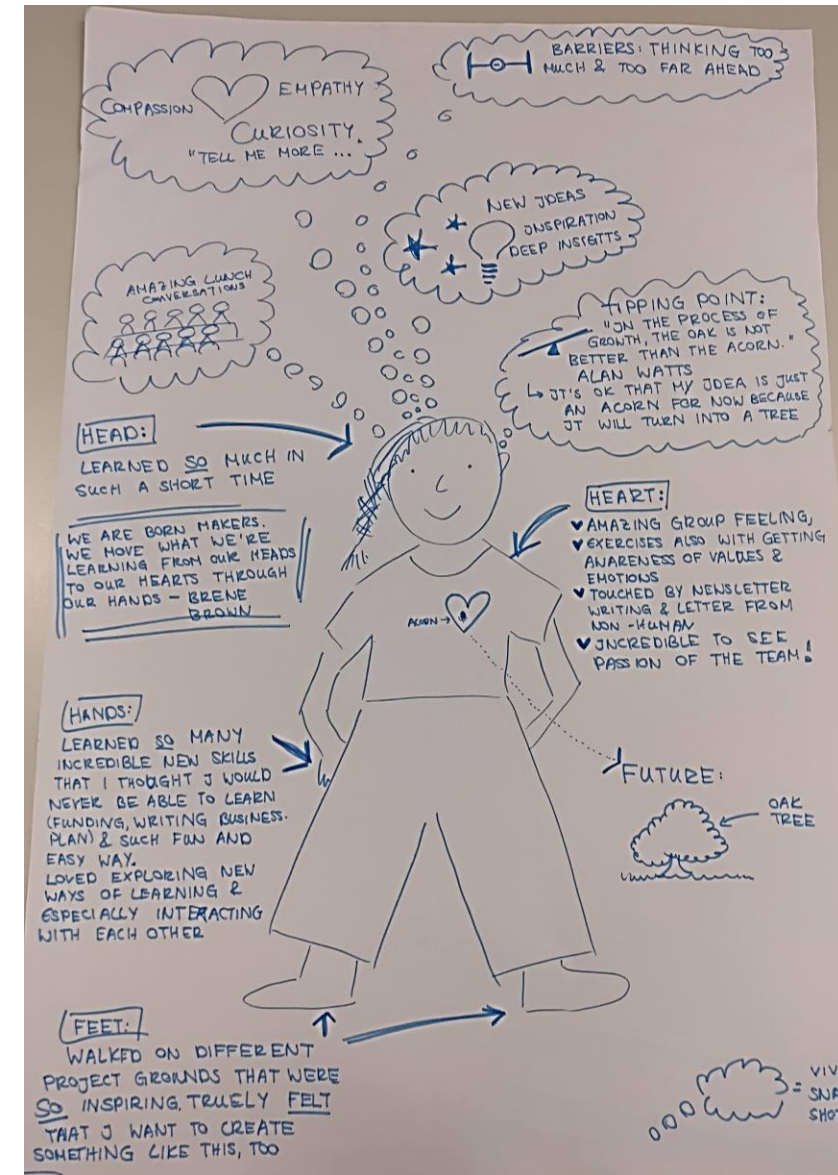 COMPASSION
EMPATHY
CURIOSITY.
"TELL ME MORE ...
BARRIERS: THINKING TOO
MUCH & TOO FAR AHEAD
NEW IDEAS
INSPIRATION
DEEP INSIGTTS
AMAZING LUNCH
CONVERSATIONS
TIPPING POINT:
"IN THE PROCESS OF
GROWTH, THE OAK IS NOT
BETTER THAN THE ACORN."
ALAN WATTS
↳ IT'S OK THAT MY IDEA IS JUST
AN ACORN FOR NOW BECAUSE
IT WILL TURN INTO A TREE
HEAD:
LEARNED SO MUCH IN
SUCH A SHORT TIME
WE ARE BORN MAKERS.
WE MOVE WHAT WE'RE
LEARNING FROM OUR HEADS
TO OUR HEARTS THROUGH
OUR HANDS - BRENE
BROWN
HEART:
♥ AMAZING GROUP FEELING,
♥ EXERCISES ALSO WITH GETTING
AWARENESS OF VALUES &
EMOTIONS
♥ TOUCHED BY NEWSLETTER
WRITING & LETTER FROM
NON-HUMAN
♥ INCREDIBLE TO SEE
PASSION OF THE TEAM!
ACORN →
HANDS:
LEARNED SO MANY
INCREDIBLE NEW SKILLS
THAT I THOUGHT I WOULD
NEVER BE ABLE TO LEARN
(FUNDING, WRITING BUSINESS.
PLAN) & SUCH FUN AND
EASY WAY.
LOVED EXPLORING NEW
WAYS OF LEARNING &
ESPECIALLY INTERACTING
WITH EACH OTHER
FUTURE:
OAK
TREE
FEET:
WALKED ON DIFFERENT
PROJECT GROUNDS THAT WERE
SO INSPIRING. TRUELY FELT
THAT I WANT TO CREATE
SOMETHING LIKE THIS, TOO
= VIV
SNA
SHOT